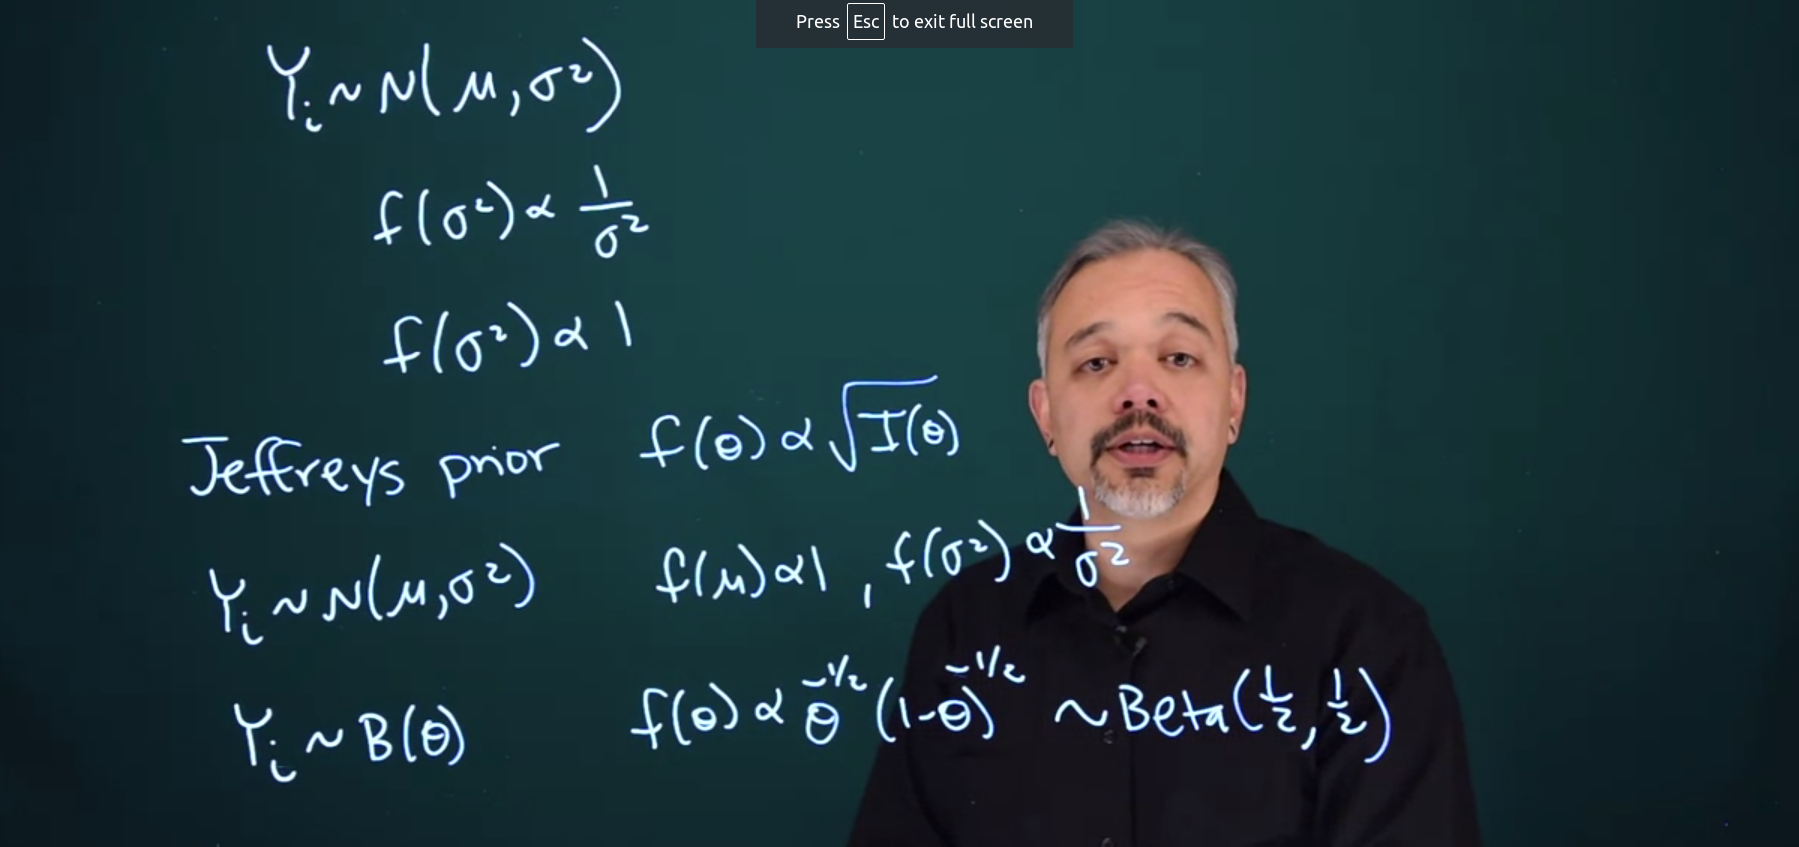 Press Esc to exit full screen
Yᵢ ~ N(μ, σ²)
f(σ²) ∝ 1/σ²
f(σ²) ∝ 1
Jeffreys prior f(θ) ∝ √I(θ)
Yᵢ ~ N(μ, σ²) f(μ) ∝ 1, f(σ²) ∝ 1/σ²
Yᵢ ~ B(θ) f(θ) ∝ θ^(-1/2) (1-θ)^(-1/2) ~ Beta(1/2, 1/2)